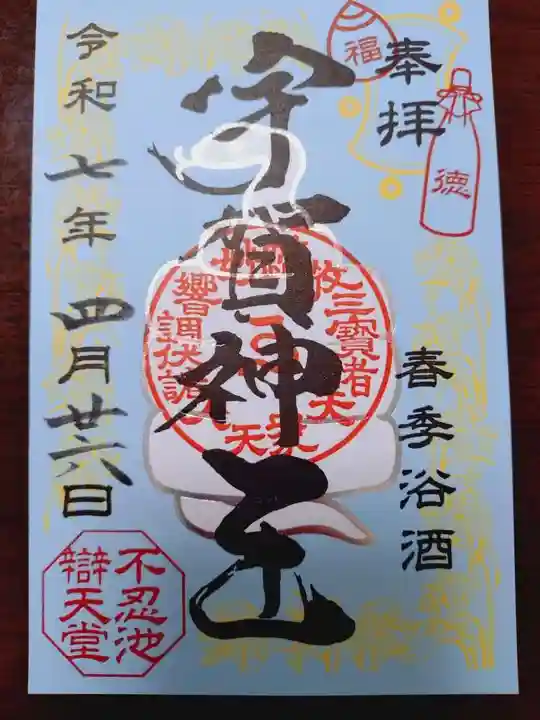 奉拝
福
徳
春季浴酒
宇賀神王
令和七年四月廿六日
不忍池
辯天堂